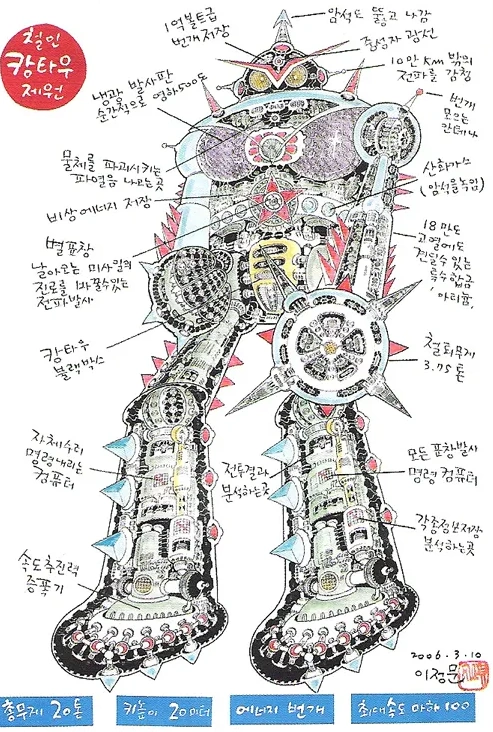 철인
캉타우
제원
1억볼트급
번개 저장
암석도 뚫고 나감
중성자 광선
10만 Km 밖의
전파를 감청
냉광 발사판
순간적으로 영하500도
번개
모으는
안테나
물체를 파괴시키는
파열음 나오는곳
산화가스
(암석을녹임)
비상에너지 저장
18만도
고열에도
견딜수있는
특수합금
별표창
날아오는 미사일의
진로를 바꿀수있는
전파발사
캉타우
블랙박스
철퇴무게
3.75 톤
자체수리
명령내리는
컴퓨터
전투결과
분석하는곳
모든 표창발사
명령 컴퓨터
각종정보저장
분석하는곳
속도추진력
증폭기
2006.3.10
이정문
총무게 20톤
키높이 20미터
에너지 번개
최대속도 마하 100